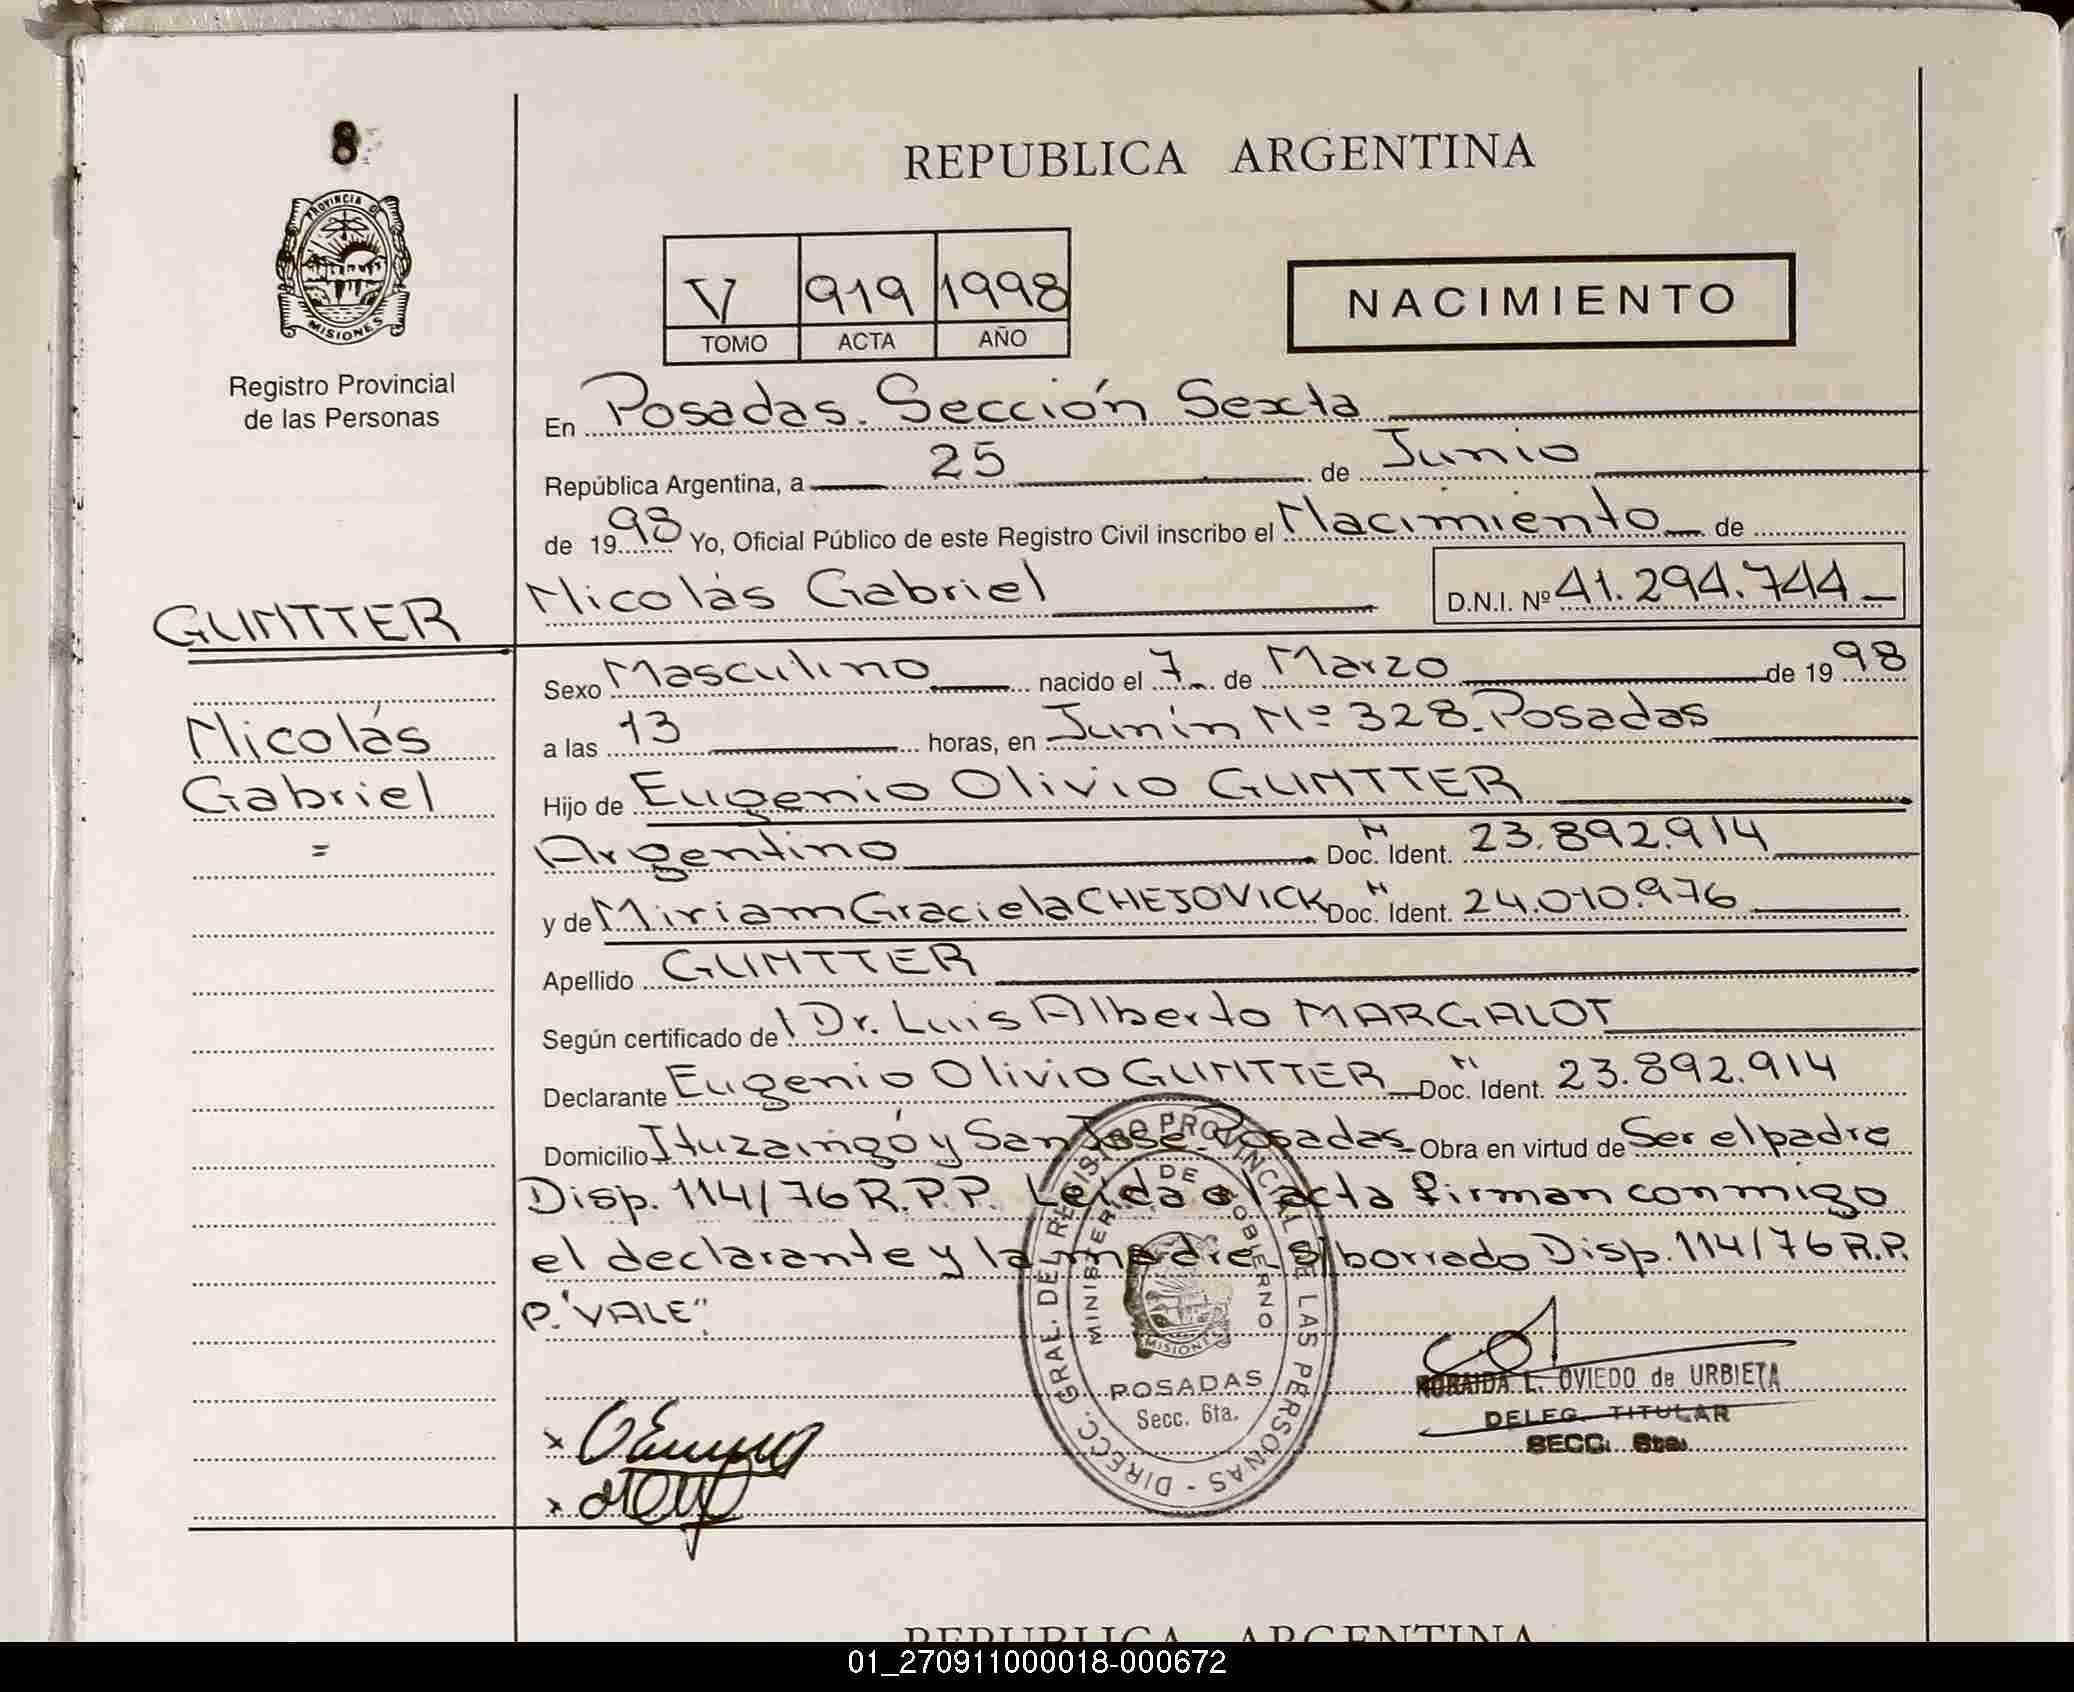 8
PROVINCIA DE
MISIONES
Registro Provincial
de las Personas
REPUBLICA ARGENTINA
V 919 1998
TOMO ACTA AÑO
NACIMIENTO
En Posadas. Sección Sexta
República Argentina, a 25 de Junio
de 1998 Yo, Oficial Público de este Registro Civil inscribo el Nacimiento de
Nicolás Gabriel D.N.I. Nº 41.294.744
GUNTTER
Nicolás
Gabriel
=
Sexo Masculino nacido el 7 de Marzo de 1998
a las 13 horas, en Junín Nº 328. Posadas
Hijo de Eugenio Olivio GUNTTER
Argentino Doc. N Ident. 23.892.914
y de Miriam Graciela CHEJOVICK Doc. N Ident. 24.010.976
Apellido GUNTTER
Según certificado del Dr. Luis Alberto MARGALOT
Declarante Eugenio Olivio GUNTTER Doc. N Ident. 23.892.914
Domicilio Ituzaingó y San José Posadas Obra en virtud de Ser el padre
Disp. 114/76 R.P.P. Leída el acta firman conmigo
el declarante y la madre. S/borrado Disp. 114/76 R.P.
P. "VALE".
DIRECC. GRAL. DEL REGISTRO PROVINCIAL DE LAS PERSONAS -
MINISTERIO DE GOBIERNO
MISIONES
POSADAS
Secc. 6ta.
NORAIDA L. OVIEDO de URBIETA
DELEG. TITULAR
SECC. 6ta.
x
x
REPUBLICA ARGENTINA
01_270911000018-000672